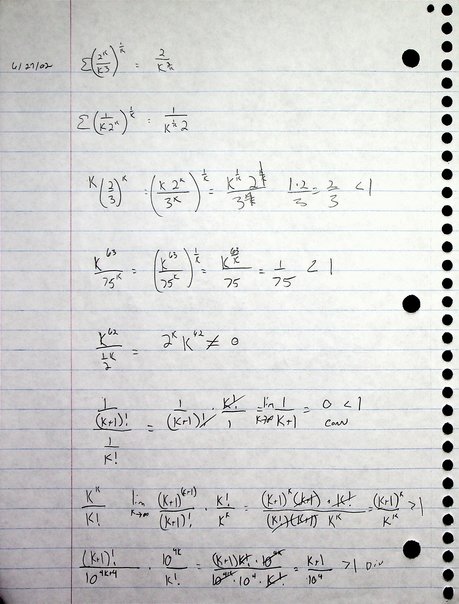 6/27/02 Σ(2^K/K^3)^(1/K) = 2/K^(3/K)
Σ(1/K2^K)^(1/K) = 1/K^(1/K) 2
K(2/3)^K = (K 2^K/3^K)^(1/K) = K^(1/K) 2^(K/K)/3^(K/K) 1·2/3 = 2/3 < 1
K^63/75^K = (K^63/75^K)^(1/K) = K^(63/K)/75 = 1/75 < 1
K^62/(1/2^K) = 2^K K^62 ≠ 0
(1/(K+1)!)/(1/K!) = 1/(K+1)! · K!/1 = lim K→∞ 1/(K+1) = 0 < 1 conv
K^K/K! lim K→∞ (K+1)^(K+1)/(K+1)! · K!/K^K = (K+1)^K (K+1) · K!/(K!)(K+1) K^K = (K+1)^K/K^K > 1
(K+1)!/10^(4K+4) · 10^(4K)/K! = (K+1)K! · 10^(4K)/10^(4K) · 10^4 · K! = K+1/10^4 > 1 Div